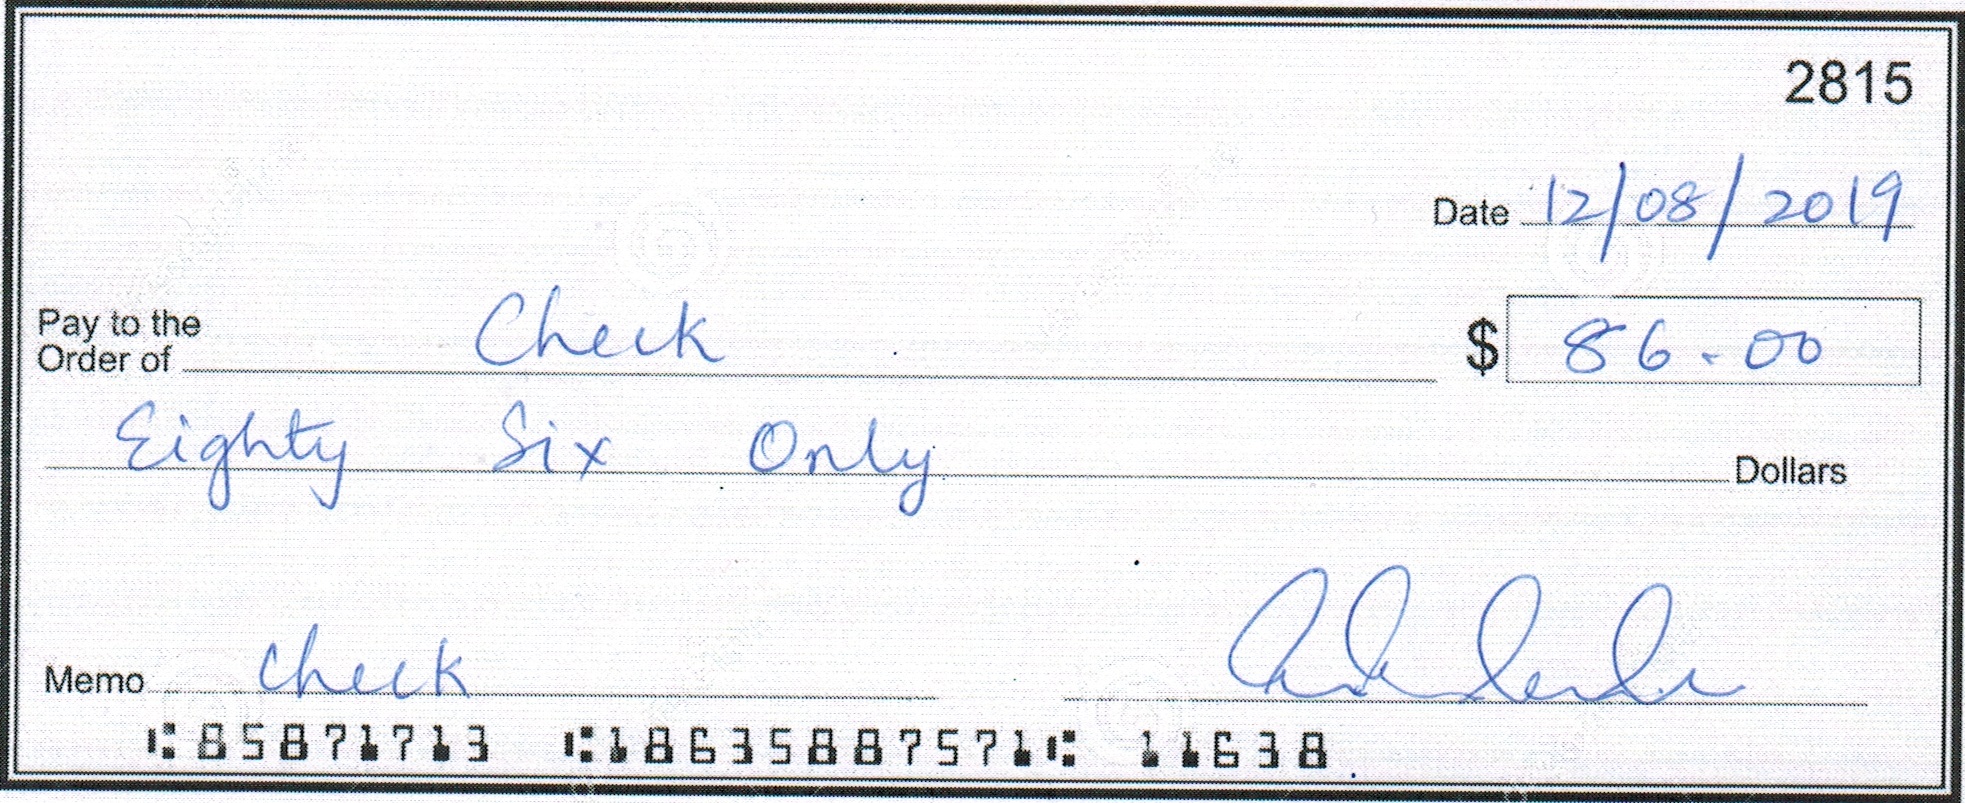 2815
Date 12/08/2019
Pay to the
Order of Check $ 86.00
Eighty Six Only Dollars
Memo Check
⑆85871713 ⑆18635887571⑆ 11638